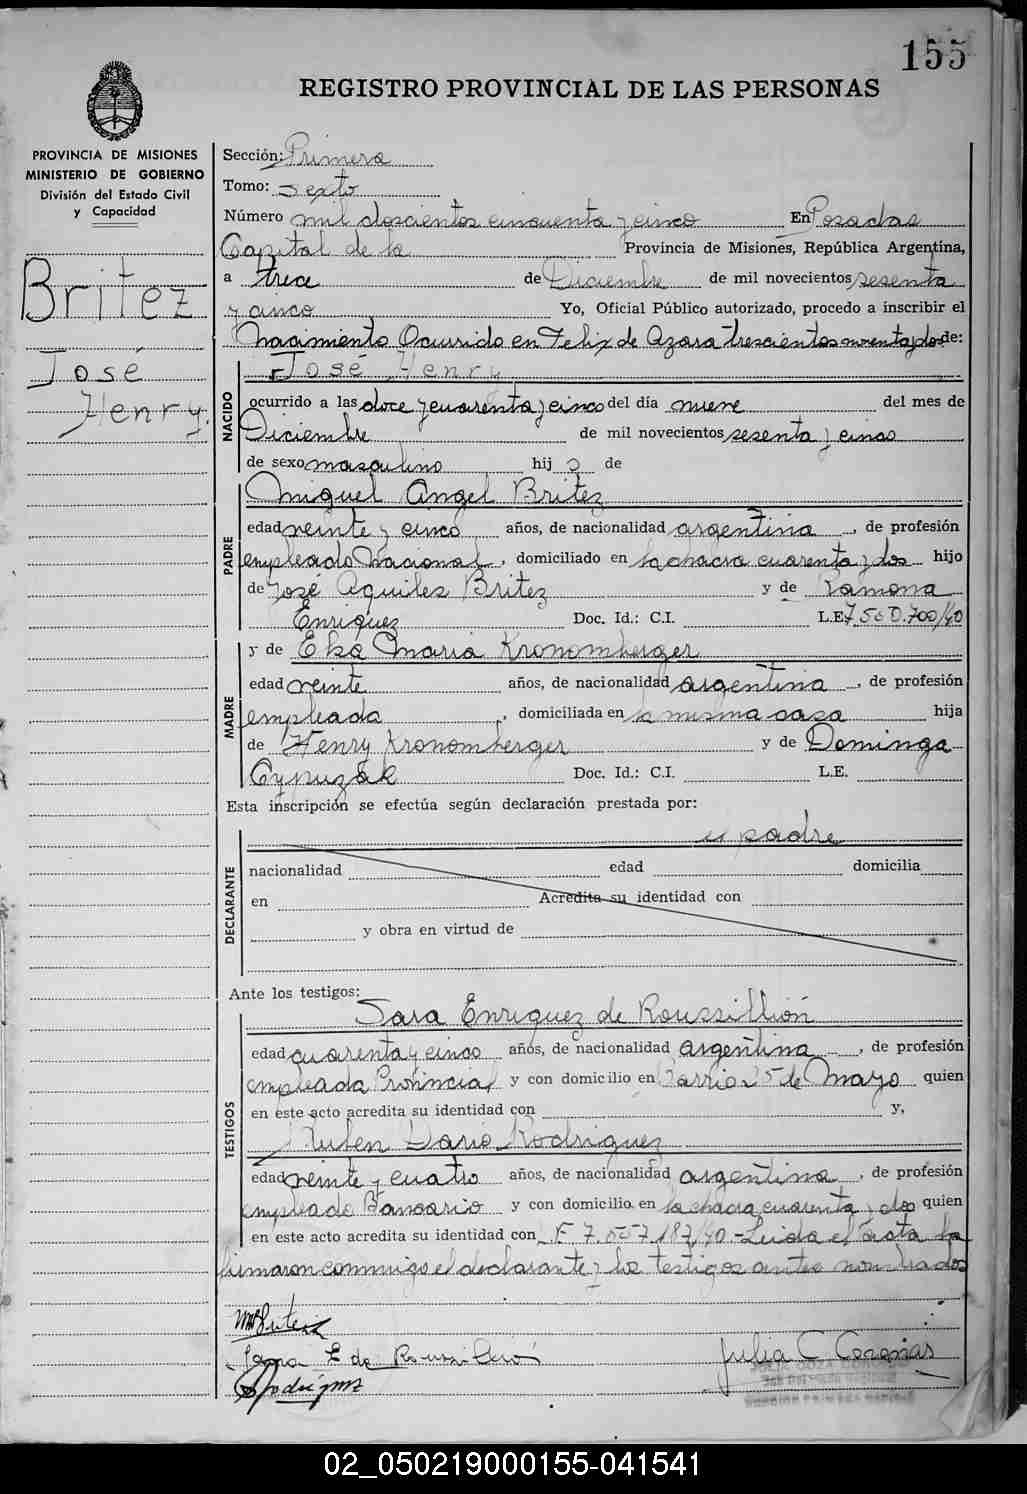 155
REGISTRO PROVINCIAL DE LAS PERSONAS
PROVINCIA DE MISIONES
MINISTERIO DE GOBIERNO
División del Estado Civil
y Capacidad
Britez
José
Henry.
Sección: Primera
Tomo: Sexto
Número mil doscientos cincuenta y cinco En Posadas
Capital de la Provincia de Misiones, República Argentina,
a trece de Diciembre de mil novecientos sesenta
y cinco Yo, Oficial Público autorizado, procedo a inscribir el
Nacimiento Ocurrido en Felix de Azara trescientos noventa y dos de:
José Henry
NACIDO
ocurrido a las doce y cuarenta y cinco del día nueve del mes de
Diciembre de mil novecientos sesenta y cinco
de sexo masculino hijo de
Miguel Angel Britez
PADRE
edad veinte y cinco años, de nacionalidad argentina, de profesión
empleado Nacional, domiciliado en la chacra cuarenta y dos hijo
de José Aquiles Britez y de Ramona
Enriquez Doc. Id.: C.I. L.E. 7.560.700/40
y de Elsa Maria Kronomberger
MADRE
edad veinte años, de nacionalidad argentina, de profesión
empleada, domiciliada en la misma casa hija
de Henry Kronomberger y de Dominga
Cypuzak Doc. Id.: C.I. L.E.
Esta inscripción se efectúa según declaración prestada por:
padre
DECLARANTE
nacionalidad edad domicilia
en Acredita su identidad con
y obra en virtud de
Ante los testigos:
Sara Enriquez de Roussillión
TESTIGOS
edad cuarenta y cinco años, de nacionalidad argentina, de profesión
empleada Provincial y con domicilio en Barrio 25 de Mayo quien
en este acto acredita su identidad con y,
Ruben Dario Rodriguez
edad veinte y cuatro años, de nacionalidad argentina, de profesión
empleado Bancario y con domicilio en la chacra cuarenta y dos quien
en este acto acredita su identidad con L.E. 7.557.187/40.- Leida el acta la
firmaron conmigo el declarante y los testigos antes nombrados
Sara E de Roussillión
Rodríguez
Julia C
02_050219000155-041541